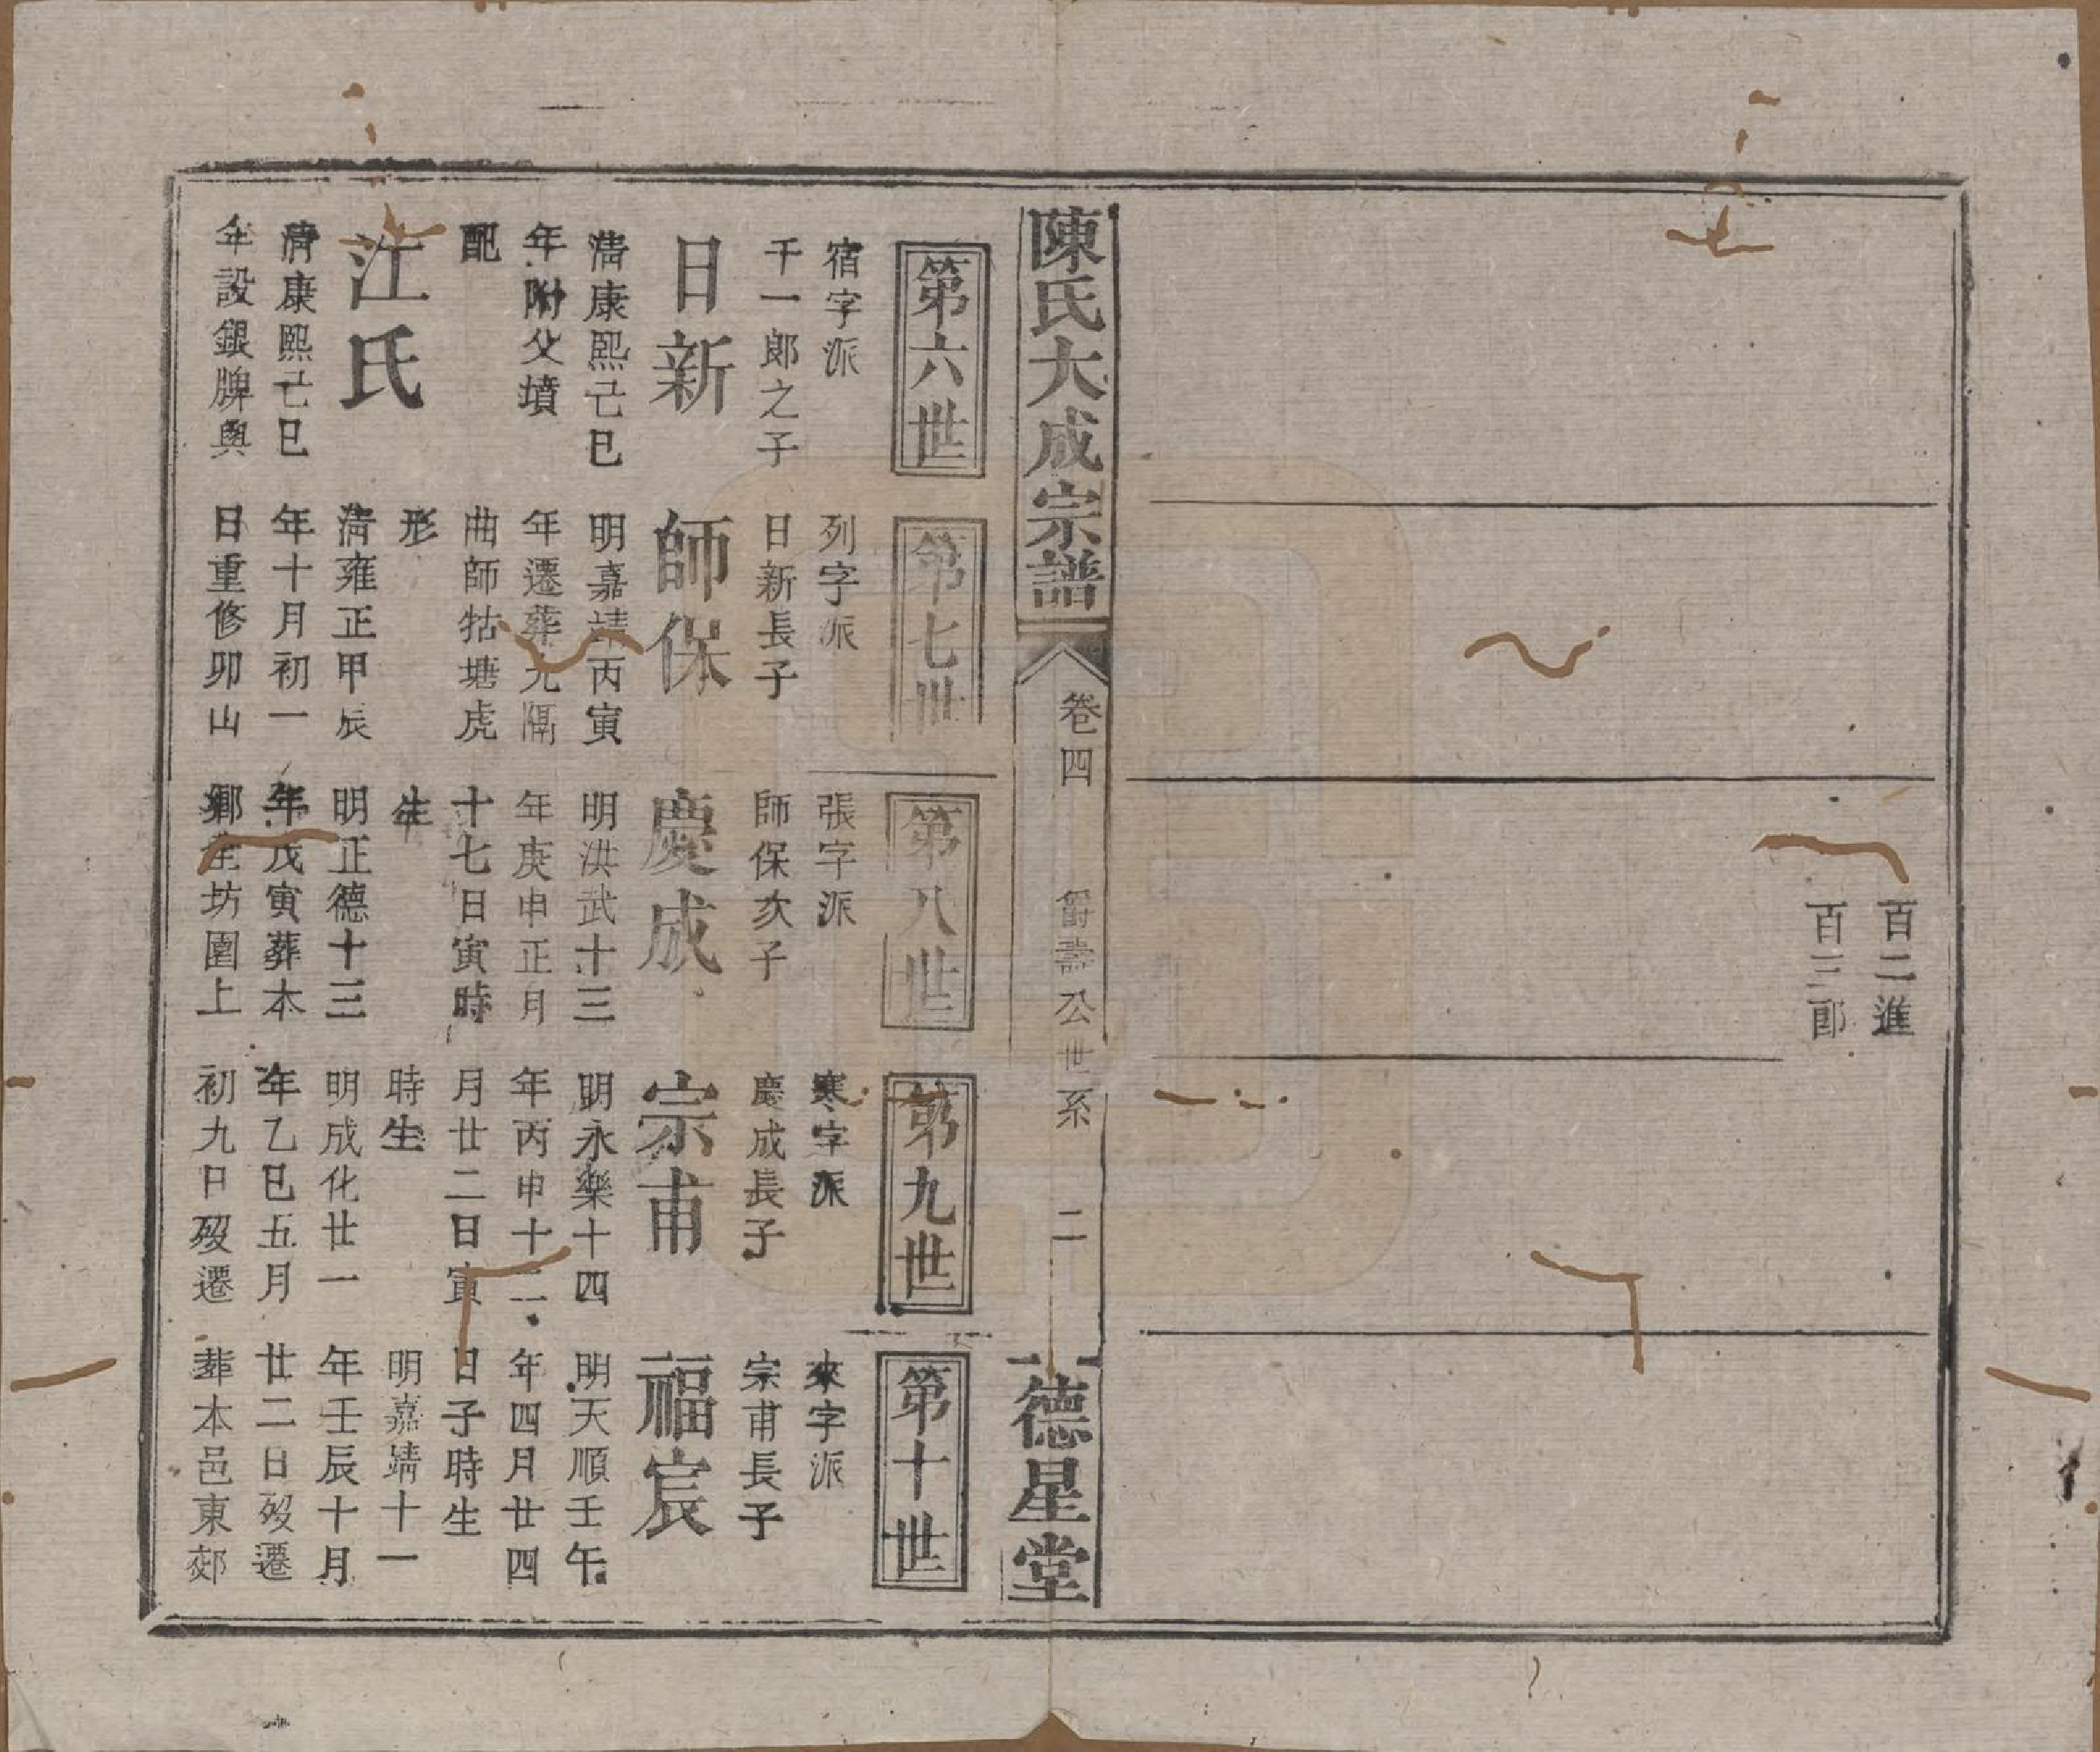 百二進
百三郎
陳氏大成宗譜
卷四
爵壽公世系
二
德星堂
第六世
宿字派
千一郎之子
日新
清康熙己巳
年附父墳
配
江氏
清康熙己巳
年設銀牌與
第七世
列字派
日新長子
師保
明嘉靖丙寅
年遷葬九隔
曲師牯塘虎
形
清雍正甲辰
年十月初一
日重修卯山
第八世
張字派
師保次子
慶成
明洪武十三
年庚申正月
十七日寅時
生
明正德十三
年戊寅葬本
鄉坊圍上
第九世
寒字派
慶成長子
宗甫
明永樂十四
年丙申十二
月廿二日寅
時生
明成化廿一
年乙巳五月
初九日歿遷
第十世
來字派
宗甫長子
福宸
明天順壬午
年四月廿四
日子時生
明嘉靖十一
年壬辰十月
廿二日歿遷
葬本邑東郊